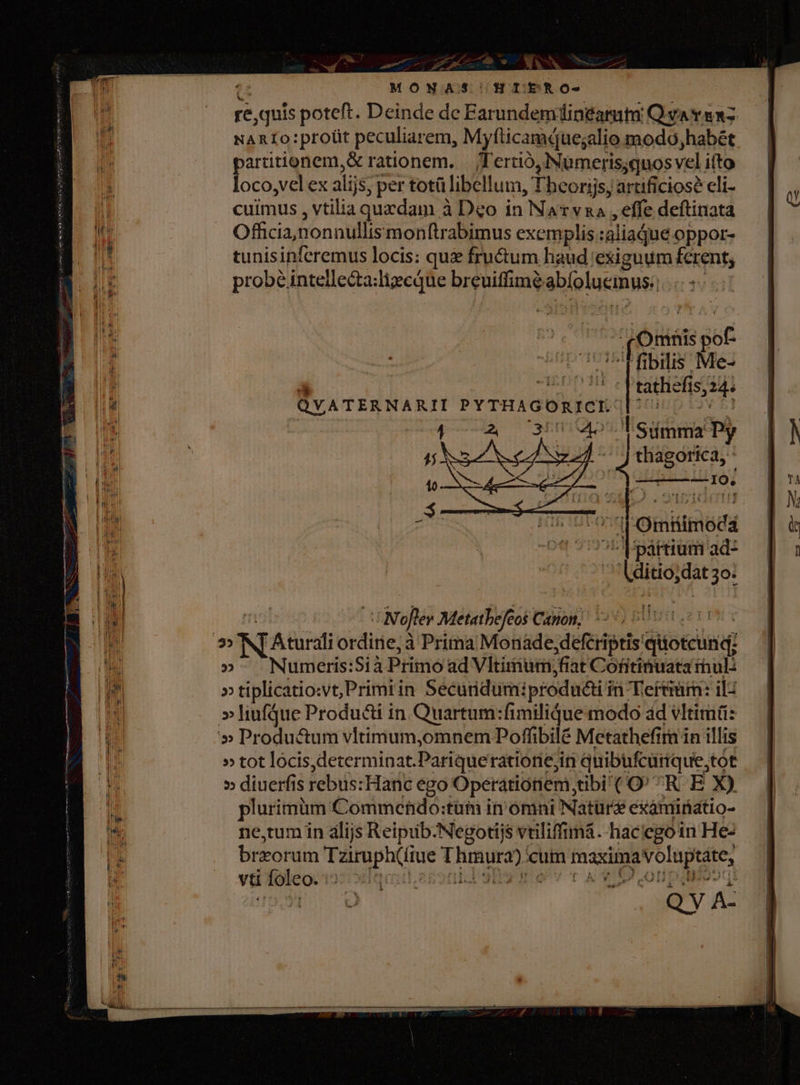 MONAS HIERO-
re,quis poteſt. Deinde de Earundem lineārum QVATER-
NARIO: proùt peculiarem, Myſticamq́ue, alio modo, habēt
partitionem, & rationem. Tertiò, Numeris, quos vel iſto
loco, vel ex alijs, per totū libellum, Theorijs, artificiosè eli-
cuimus, vtilia quædam à Deo in NATVRA, eſſe deſtinata
Officia, nonnullis monſtrabimus exemplis: aliaq́ue oppor-
tunis inſeremus locis: quæ fructum haud exiguum ferent,
probè intellecta: lizecq́ue breuiſſimè abſoluemus.
Omnis poſ-
ſibilis Me-
tatheſis, 24.
QVATERNARII PYTHAGORICI.
1 2 3 4
Summa Py
thagorica,
10.
Omnimoda
partium ad-
ditio, dat 30.
Noſter Metatheſeos Canon.
» NAturali ordine, à Prima Monade, deſcriptis quotcunq;
» Numeris: Si à Primo ad Vltimum, fiat Continuata mul-
» tiplicatio: vt, Primi in Secundum: producti in Tertium: il-
» liuſq́ue Producti in Quartum: ſimiliq́ue modo ad vltimū:
» Productum vltimum, omnem Poſſibilē Metatheſim in illis
» tot locis, determinat. Parique ratione, in quibuſcunque, tot
» diuerſis rebus: Hanc ego Operationem, tibi (O REX)
plurimùm Commendo: tum in omni Naturæ examinatio-
ne, tum in alijs Reipub. Negotijs vtiliſſimā. hac ego in He-
bræorum Tziruph (ſiue Thmura) cum maxima voluptate,
vti ſoleo.
QVA-